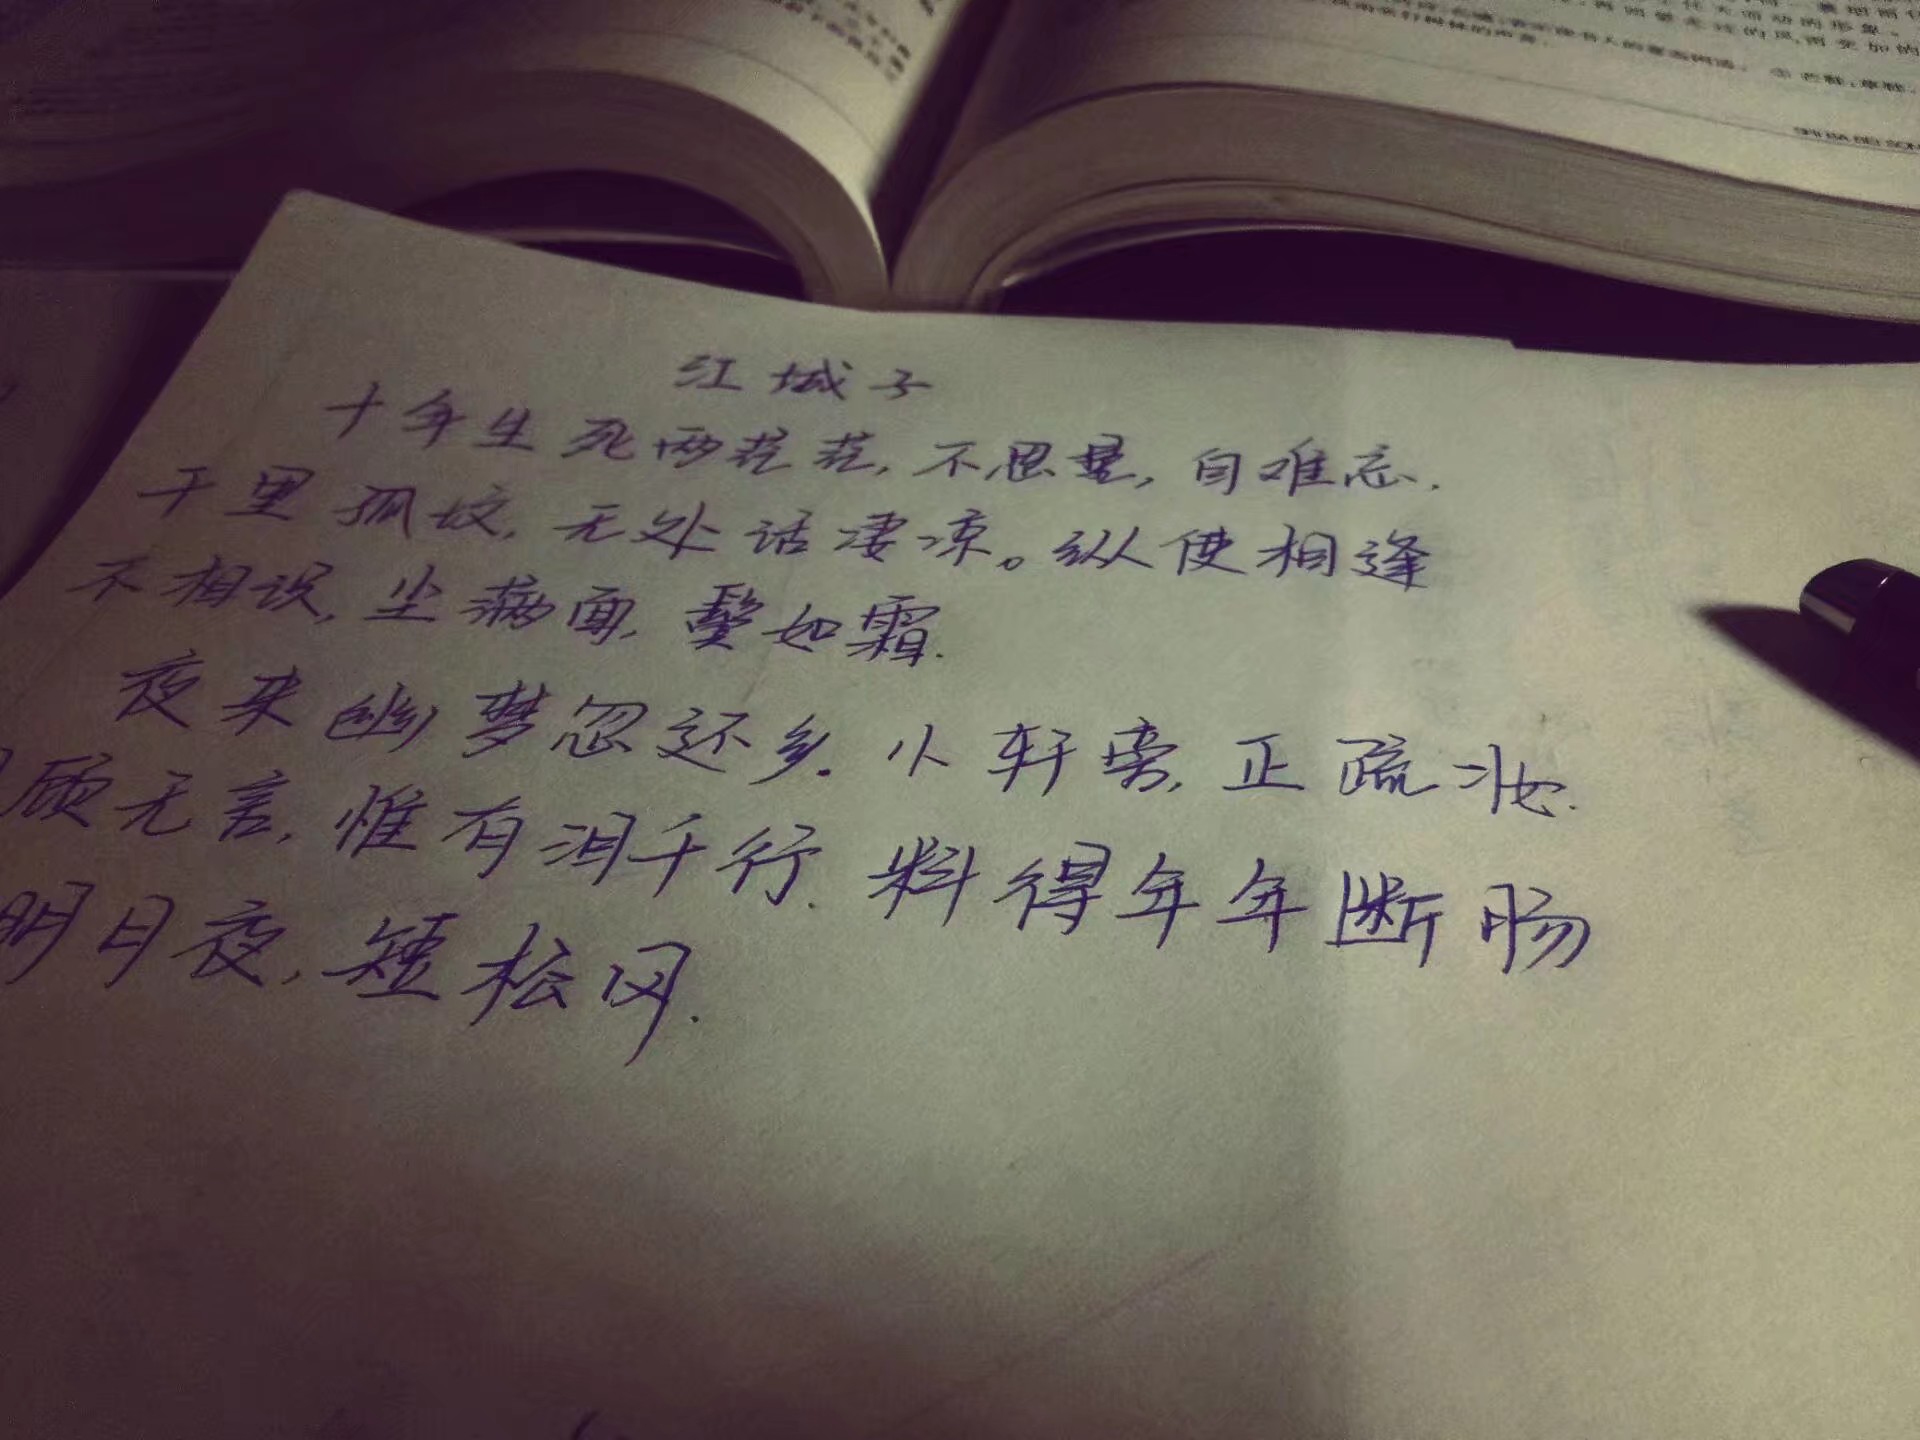 红城子
十年生死两茫茫,不思量,自难忘.
千里孤坟,无处话凄凉。纵使相逢
不相识,尘满面,鬓如霜.
夜来幽梦忽还乡.小轩旁,正疏妆.
顾无言,惟有泪千行.料得年年断肠
明月夜,短松冈.